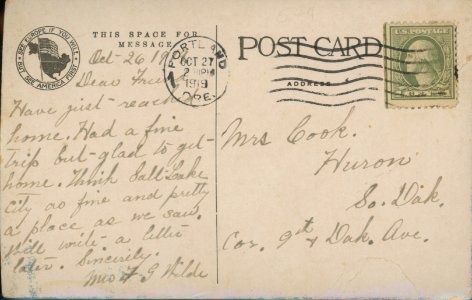 SEE EUROPE IF YOU WILL
BUT SEE AMERICA FIRST
THIS SPACE FOR
MESSAGE
POST CARD
ADDRESS
U.S. POSTAGE
PORTLAND
OCT 27
1919
ORE.
Oct-26 19
Dear
Have just-reach
home. Had a fine
trip but-glad to get-
home. Think Salt-Lake
City as fine and pretty
a place as we saw.
Will write a letter
later. Sincerely.
Mrs F G Wilde
Mrs Cook.
Huron
So. Dak.
Cor. 9th & Dak. Ave.